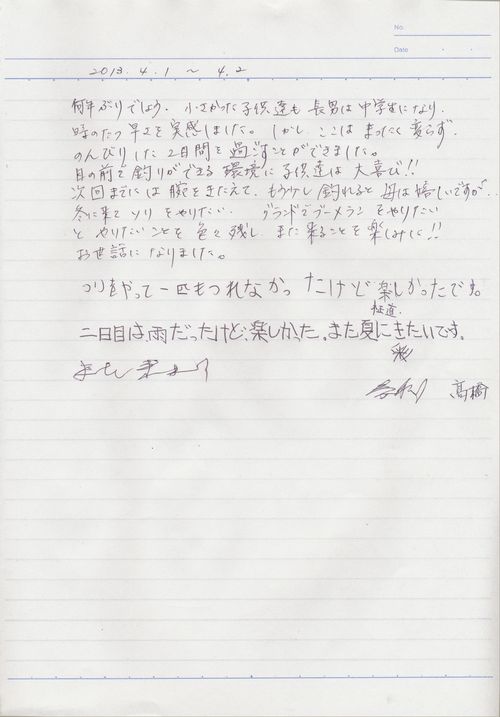 No.
Date
2013. 4. 1 ～ 4. 2
何年ぶりでしょう. 小さかった子供達も 長男は中学生になり.
時のたつ早さを実感しました。しかし、ここは まったく変らず.
のんびりした2日間を過ごすことができました。
目の前で釣りができる環境に子供達は大喜び!!
次回までには腕をきたえて、もう少し釣れると 母は嬉しいですが..
冬に来てソリをやりたい. グランドでブーメランをやりたい
と やりたいことを色々残し、また来ることを楽しみに!!
お世話になりました。
つりをやって一匹もつれなかったけど楽しかったです。
二日目は雨だったけど、楽しかった。また夏にきたいです。
彩
高橋